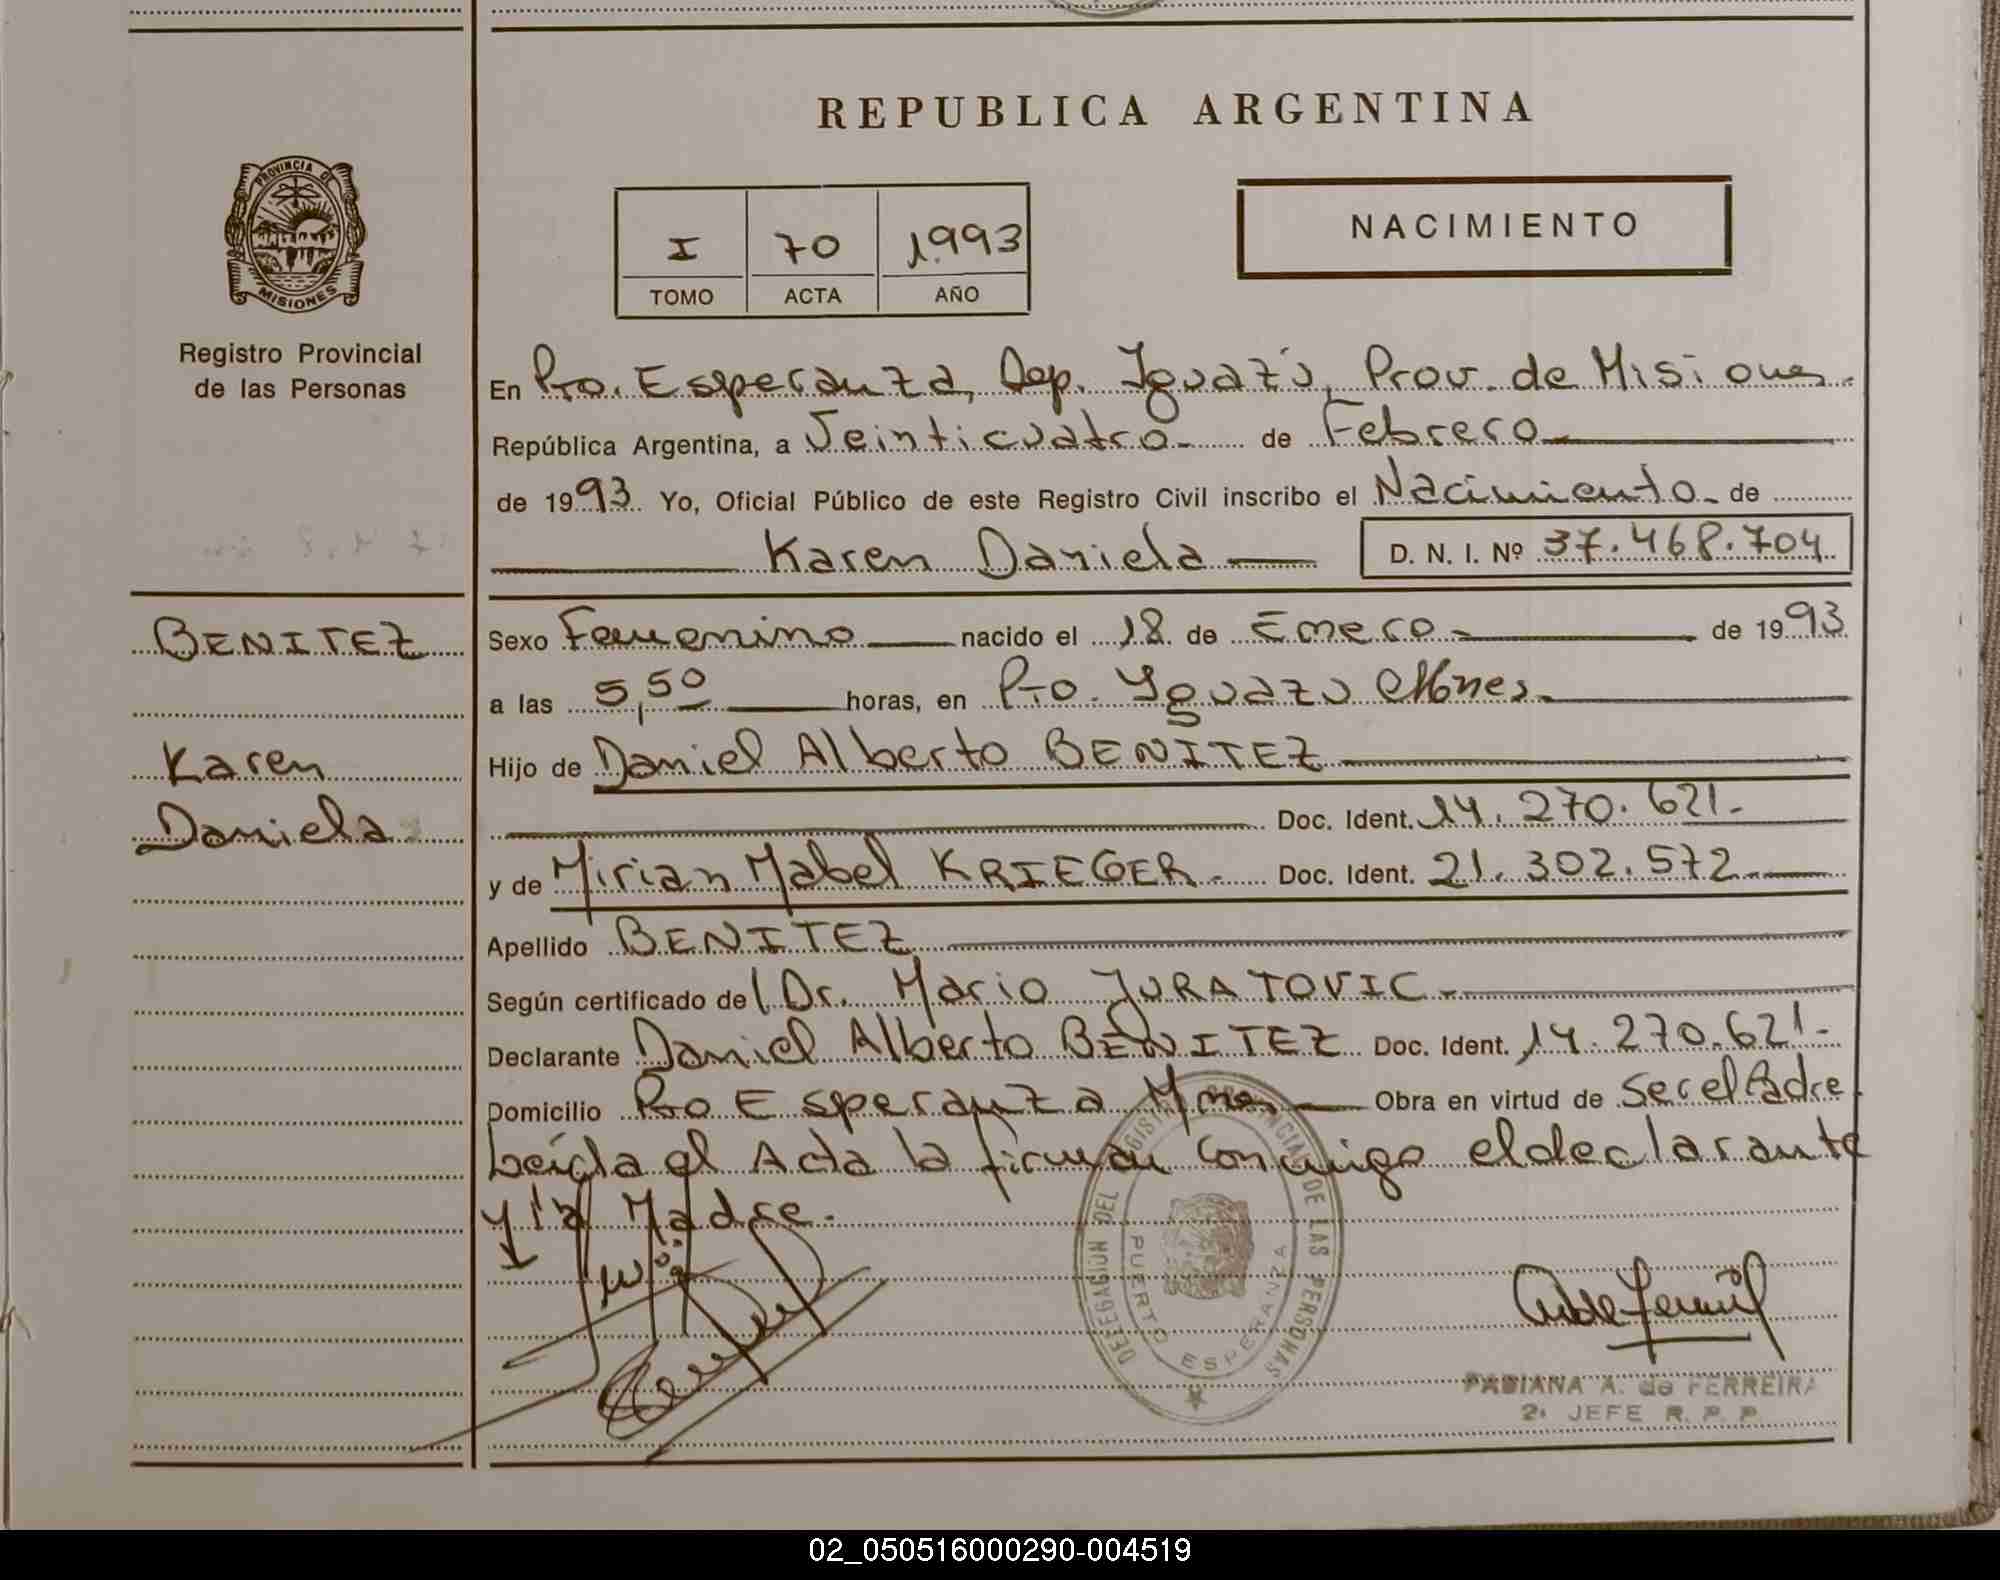 REPUBLICA ARGENTINA
PROVINCIA DE
MISIONES
Registro Provincial
de las Personas
I 70 1.993
TOMO ACTA AÑO
NACIMIENTO
En Pto. Esperanza, Dep. Iguazú, Prov. de Misiones.
República Argentina, a Veinticuatro de Febrero
de 1993 Yo, Oficial Público de este Registro Civil inscribo el Nacimiento de
Karen Daniela D. N. I. Nº 37.468.704
BENITEZ
Karen
Daniela
Sexo Femenino nacido el 18 de Enero de 1993
a las 5,50 horas, en Pto. Iguazu Mnes.
Hijo de Daniel Alberto BENITEZ
Doc. Ident. 14.270.621.-
y de Mirian Mabel KRIEGER. Doc. Ident. 21.302.572.
Apellido BENITEZ
Según certificado del Dr. Mario JURATOVIC.
Declarante Daniel Alberto BENITEZ Doc. Ident. 14.270.621.-
Domicilio Pto Esperanza Mnes Obra en virtud de ser el Padre.
Leída el Acta la firman conmigo el declarante
y la Madre.
DELEGACION DEL REGISTRO PROVINCIAL DE LAS PERSONAS
PUERTO ESPERANZA
FABIANA A. de FERREIRA
2º JEFE R. P. P.
02_050516000290-004519